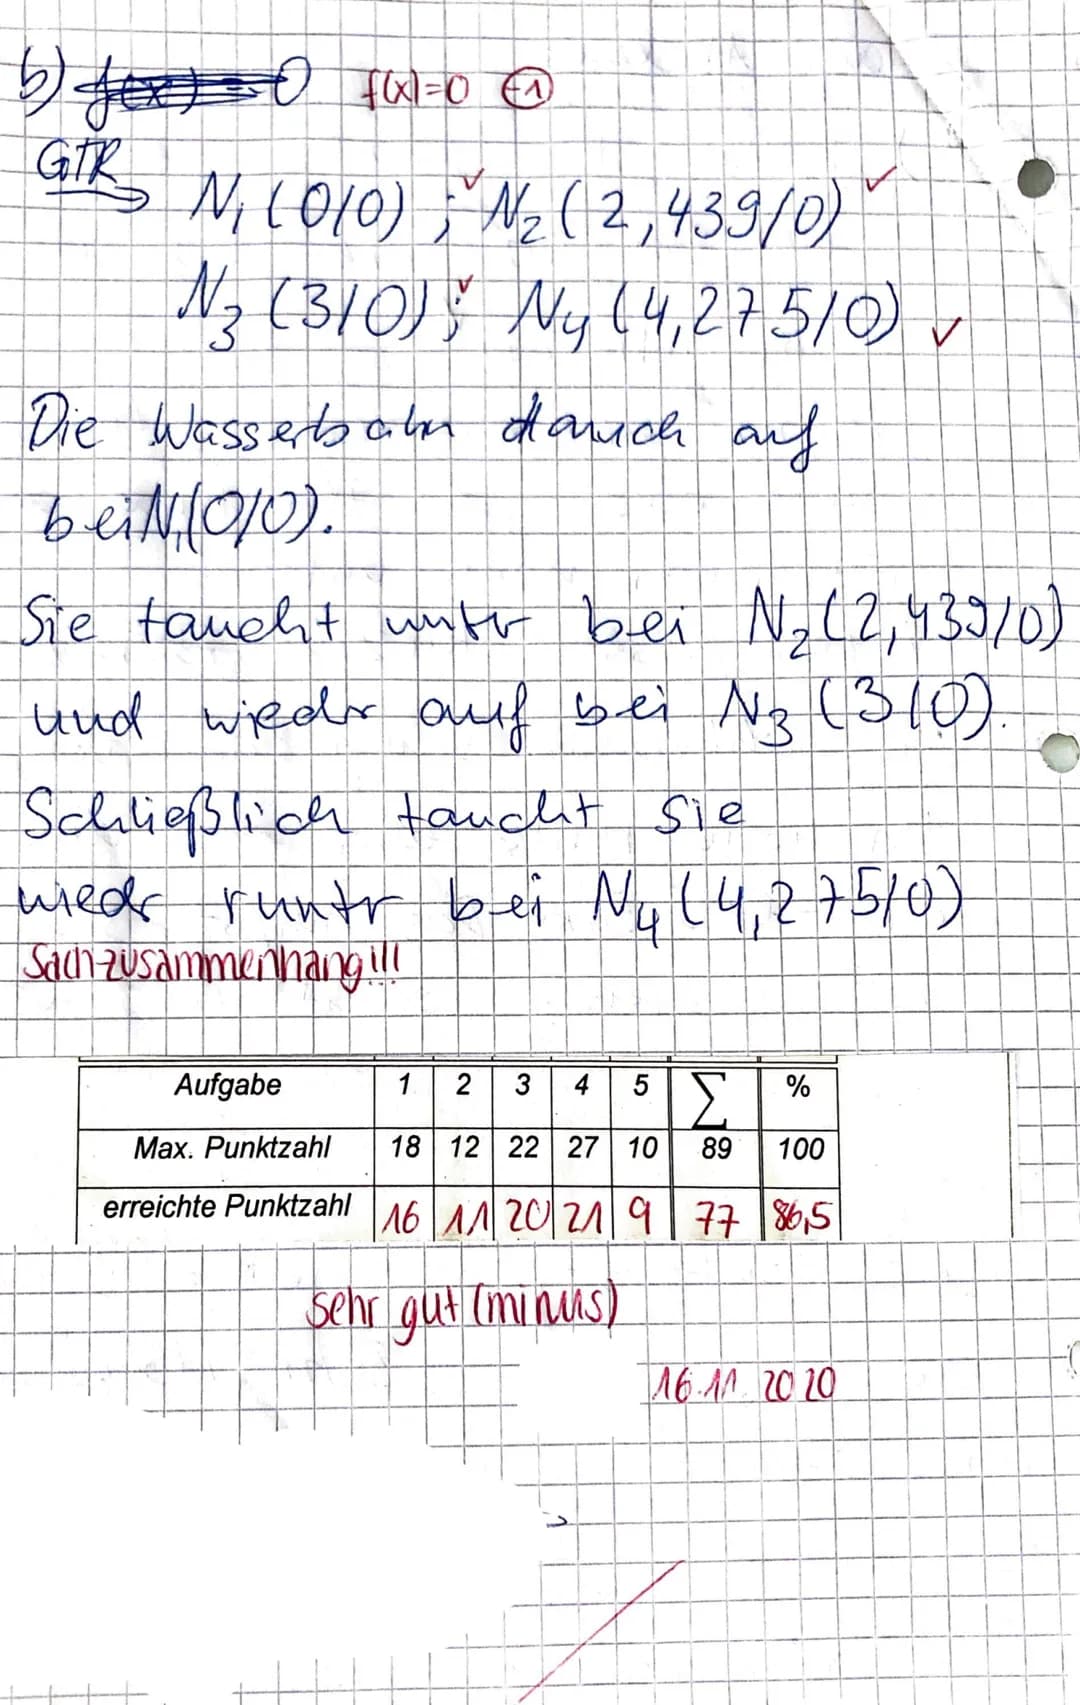 b) f(x) = 0 f(x)=0 (-1)
GTR N₁(0/0) ; N₂(2,439/0)
N₃(3/0) ; N₄(4,275/0)
Die Wasserbahn auf
bei N₁(0/0).
Sie taucht unter bei N₂(2,439/0)
und wieder auf bei N₃(3/0).
Schließlich taucht sie
wieder runter bei N₄(4,275/0)
Sachzusammenhang!!!
Aufgabe 1 2 3 4 5 ∑ %
Max. Punktzahl 18 12 22 27 10 89 100
erreichte Punktzahl 16 11 20 21 9 77 86,5
sehr gut (minus)
16.11.2020